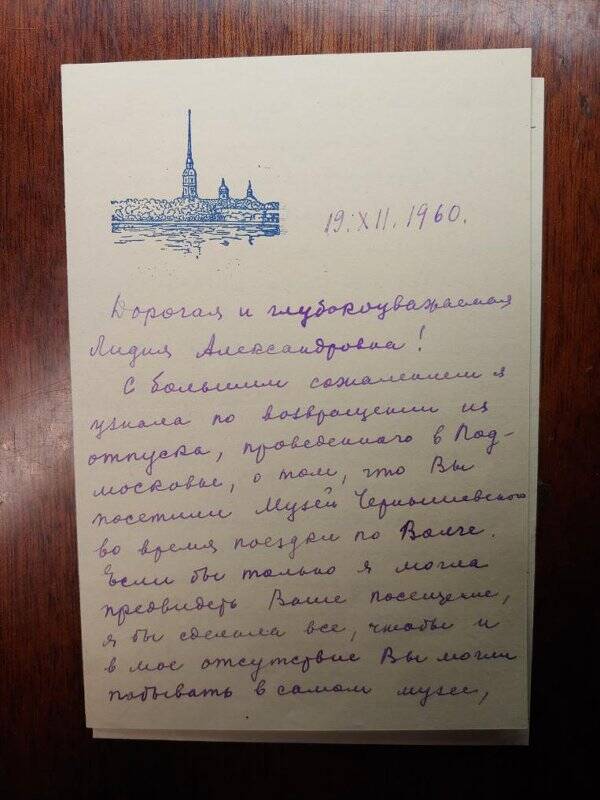 19.XII.1960.
Дорогая и глубокоуважаемая
Лидия Александровна!
С большим сожалением я
узнала по возвращении из
отпуска, проведенного в Под-
московье, о том, что Вы
посетили Музей Чернышевского
во время поездки по Волге.
Если бы только я могла
предвидеть Ваше посещение,
я бы сделала все, чтобы и
в мое отсутствие Вы могли
побывать в самом музее,